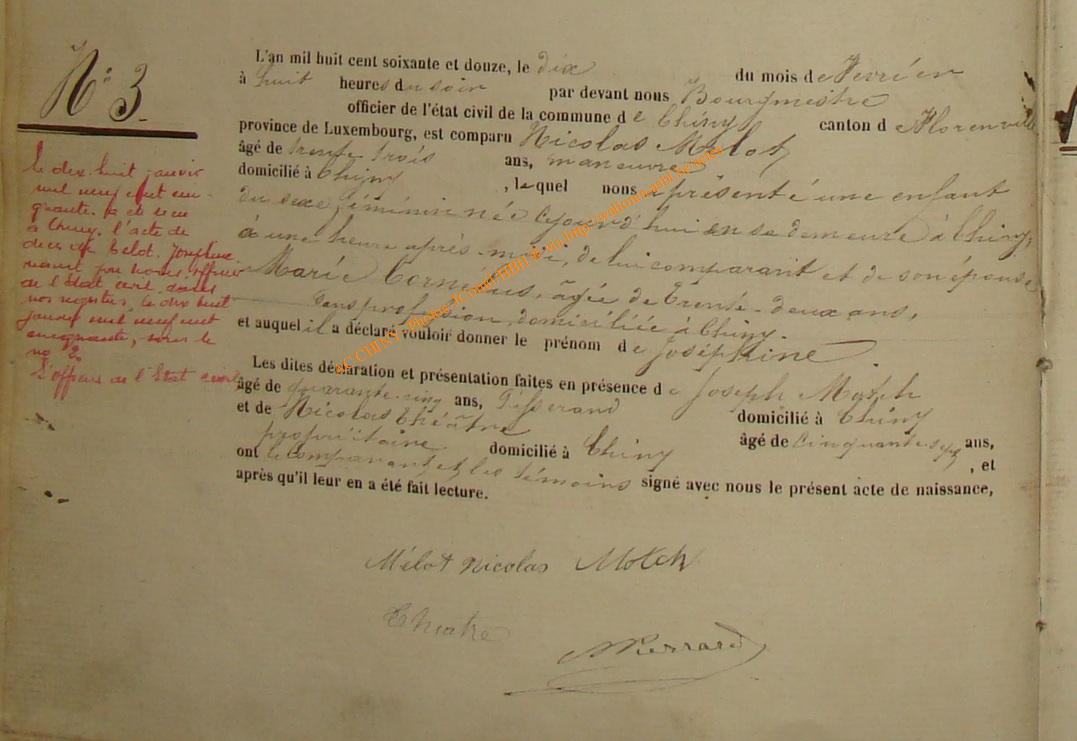 N° 3.
L'an mil huit cent soixante et douze, le dix du mois de Fevrier
à huit heures du soir par devant nous Bourgmestre
officier de l'état civil de la commune de Chiny canton de Florenville
province de Luxembourg, est comparu Nicolas Mélot
âgé de trente trois ans, manœuvre
domicilié à Chiny, lequel nous a présenté une enfant
du sexe féminin née cejourd'hui en sa demeure à Chiny,
à une heure après-midi, de lui comparant et de son épouse
Marie âgée de Trente-deux ans,
sans profession, domiciliée à Chiny.
et auquel il a déclaré vouloir donner le prénom de Joséphine
Les dites déclaration et présentation faites en présence de Joseph Motch
âgé de quarante-cinq ans, Tisserand domicilié à Chiny
et de Nicolas Théâtre âgé de cinquante-sept ans,
propriétaire domicilié à Chiny, et
ont le comparant et les témoins signé avec nous le présent acte de naissance,
après qu'il leur en a été fait lecture.
Le dix huit janvier
mil neuf cent cin-
quante, a été
à Chiny, l'acte de
décès de Melot, Joséphine
par nous, officier
de l'Etat civil dans
nos registres, le dix huit
janvier mil neuf cent
cinquante, sous le
no 2.
L'officier de l'Etat civil
Mélot Nicolas Motch
Theatre